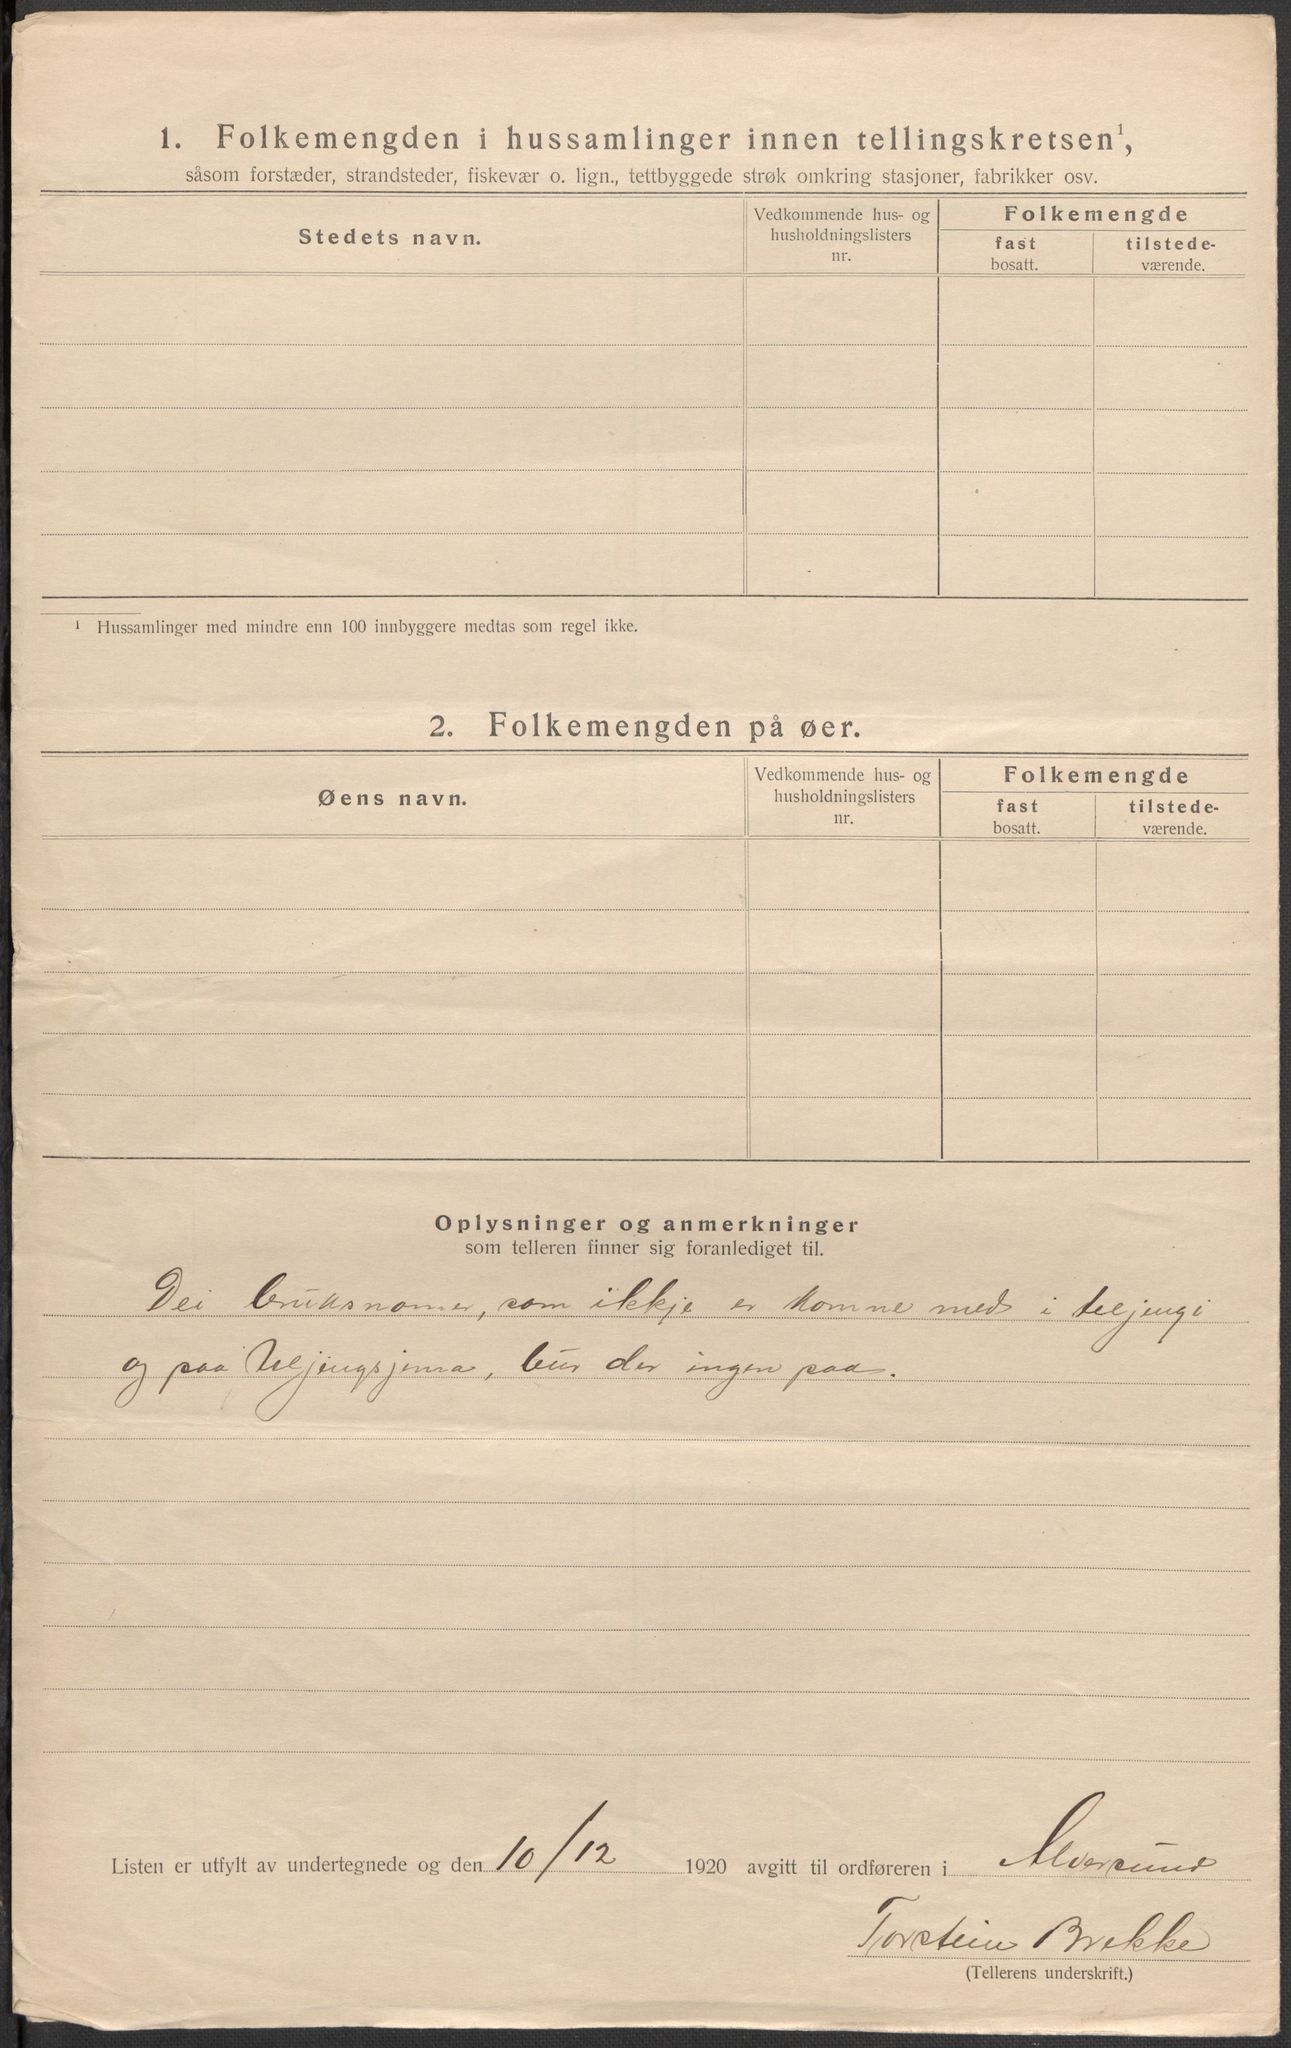 1. Folkemengden i hussamlinger innen tellingskretsen¹,
såsom forstæder, strandsteder, fiskevær o. lign., tettbyggede strøk omkring stasjoner, fabrikker osv.
Stedets navn.
Vedkommende hus- og
husholdningslisters
nr.
Folkemengde
fast
bosatt.
tilstede-
værende.
¹ Hussamlinger med mindre enn 100 innbyggere medtas som regel ikke.
2. Folkemengden på øer.
Øens navn.
Vedkommende hus- og
husholdningslisters
nr.
Folkemengde
fast
bosatt.
tilstede-
værende.
Oplysninger og anmerkninger
som telleren finner sig foranlediget til.
Dei bruksnamn, som ikkje er komne med i teljengi
og paa, bur der ingen paa.
Listen er utfylt av undertegnede og den 10/12 1920 avgitt til ordføreren i Alversund
Torstein Brekke
(Tellerens underskrift.)